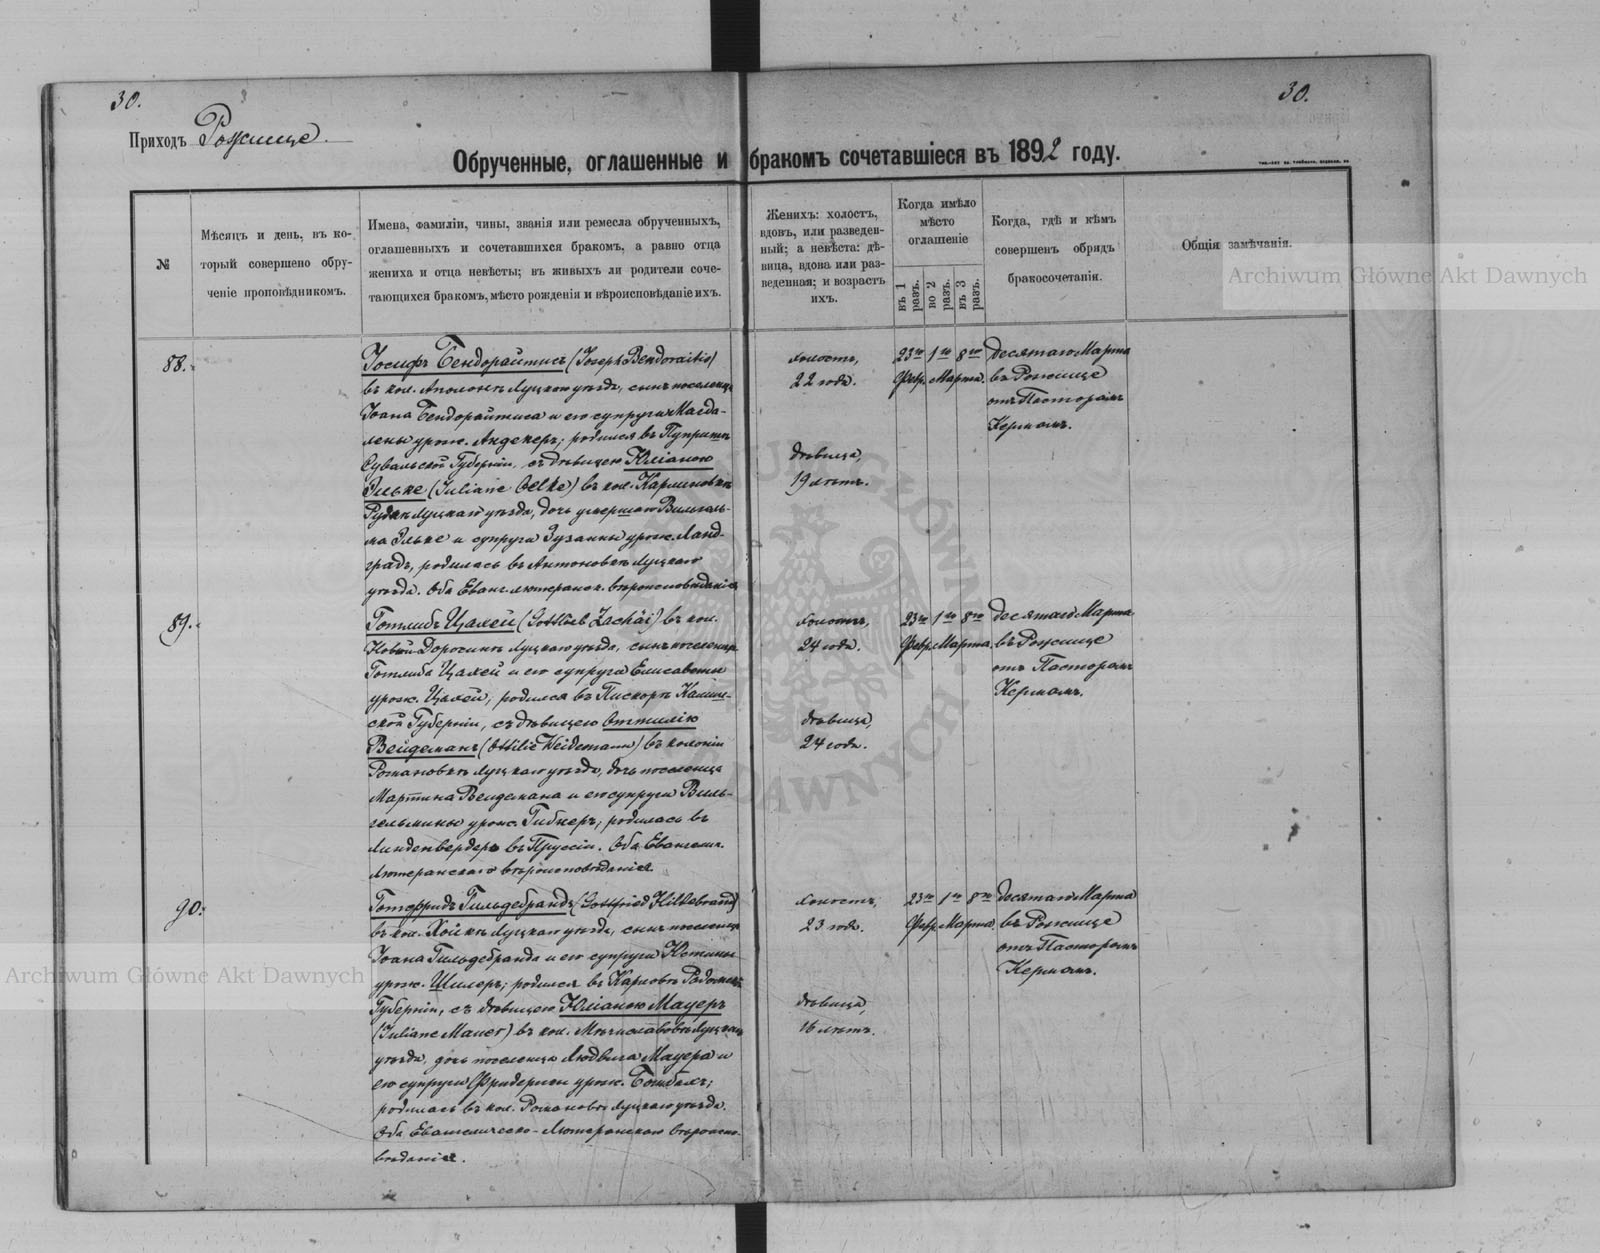 30.
30.
Приходъ Рожище.
Обрученные, оглашенные и бракомъ сочетавшіеся въ 1892 году.
№
Мѣсяцъ и день, въ ко-
торый совершено обру-
ченіе проповѣдникомъ.
Имена, фамиліи, чины, званія или ремесла обрученныхъ,
оглашенныхъ и сочетавшихся бракомъ, а равно отца
жениха и отца невѣсты; въ живыхъ ли родители соче-
тающихся бракомъ, мѣсто рожденія и вѣроисповѣданіе ихъ.
Женихъ: холостъ,
вдовъ, или разведен-
ный; а невѣста: дѣ-
вица, вдова или раз-
веденная; и возрастъ
ихъ.
Когда имѣло
мѣсто
оглашеніе
въ 1 разъ.
во 2 разъ.
въ 3 разъ.
Когда, гдѣ и кѣмъ
совершенъ обрядъ
бракосочетанія.
Общія замѣчанія.
Archiwum Główne Akt Dawnych
88.
Іосифъ Бендорайтисъ (Joseph Bendoraitis)
въ кол. Аполонкѣ Луцкаго уѣзда, сынъ поселенца
Іоана Бендорайтиса и его супруги Магда-
лены урож. Андекеръ; родился въ
Сувальской Губерніи, съ дѣвицею Юліаною
Эльке (Juliane Oelke) въ кол. Карлиновкѣ
Луцкаго уѣзда, дочь умершаго Вильгель-
ма Эльке и супруги Зузанны урож. Ланд-
градъ, родилась въ Антоновкѣ Луцкаго
уѣзда. Оба Еванг. лютеранск. вѣроисповѣданія.
холостъ,
22 года.
дѣвица,
19 лѣтъ.
23го 1го 8го
Февр. Марта.
десятаго Марта
въ Рожище
отъ Пасторомъ
Кермомъ.
89.
Готлибъ Цахей (Gottlieb Zachäi) въ кол.
Новый Доросинъ Луцкаго уѣзда, сынъ поселенца
Готлиба Цахей и его супруги Елисаветы
урож. Цахей; родился въ Пискоръ Калиш-
ской Губерніи, съ дѣвицею Оттилію
Вейдеманъ (Ottilie Weidemann) въ колоніи
Романовкѣ Луцкаго уѣзда, дочь поселенца
Мартина Вейдемана и его супруги Виль-
гельмины урож. Гибнеръ; родилась въ
Линденвердеръ въ Пруссіи. Оба Евангелич.
Лютеранскаго вѣроисповѣданія.
холостъ,
24 года.
дѣвица,
24 года.
23го 1го 8го
Февр. Марта.
десятаго Марта
въ Рожище
отъ Пасторомъ
Кермомъ.
90.
Готфридъ Гильдебрандъ (Gottfried Hildebrand)
въ кол. Луцкаго уѣзда, сынъ поселенца
Іоана Гильдебранда и его супруги
урож. Шилеръ; родился въ Карловѣ Радомск.
Губерніи, съ дѣвицею Юліаною Мауеръ
(Juliane Mauer) въ кол. Мѣчиславовѣ Луцкаго
уѣзда, дочь поселенца Людвига Мауера и
его супруги Фридерики урож.
родилась въ кол. Романовѣ Луцкаго уѣзда.
Оба Евангелическо-Лютеранскаго вѣроиспо-
вѣданія.
холостъ,
23 года.
дѣвица,
16 лѣтъ.
23го 1го 8го
Февр. Марта.
десятаго Марта
въ Рожище
отъ Пасторомъ
Кермомъ.
Archiwum Główne Akt Dawnych